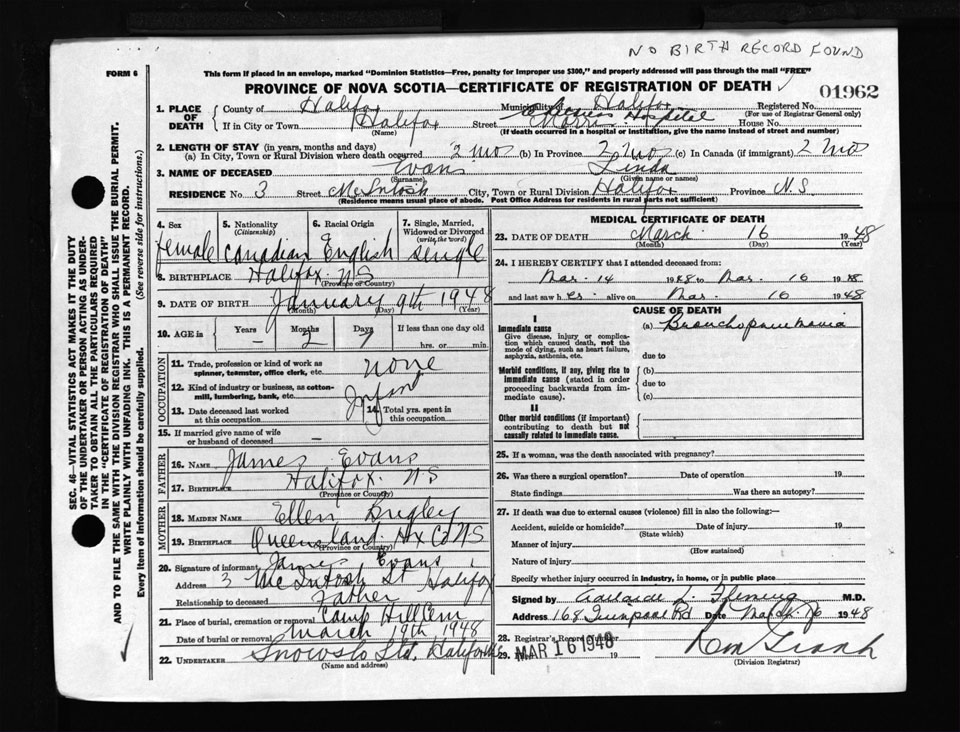 NO BIRTH RECORD FOUND
FORM 6
This form if placed in an envelope, marked "Dominion Statistics—Free, penalty for improper use $300," and properly addressed will pass through the mail "FREE"
PROVINCE OF NOVA SCOTIA—CERTIFICATE OF REGISTRATION OF DEATH
01962
1. PLACE OF DEATH County of Halifax Municipality of Halifax Registered No.
(For use of Registrar General only)
If in City or Town Halifax Street Morris Hospital House No.
(Name) (If death occurred in a hospital or institution, give the name instead of street and number)
2. LENGTH OF STAY (in years, months and days)
(a) In City, Town or Rural Division where death occurred 2 mo (b) In Province 2 mo (c) In Canada (if immigrant) 2 mo
3. NAME OF DECEASED Evans Linda
(Surname) (Given name or names)
RESIDENCE No. 3 Street McIntosh City, Town or Rural Division Halifax Province N.S
(Residence means usual place of abode. Post Office Address for residents in rural parts not sufficient)
4. Sex female
5. Nationality (Citizenship) Canadian
6. Racial Origin English
7. Single, Married, Widowed or Divorced (write the word) single
8. BIRTHPLACE Halifax N S
(Province or Country)
9. DATE OF BIRTH January 9th 1948
(Month) (Day) (Year)
10. AGE in Years – Months 2 Days 7 If less than one day old
hrs. or min.
OCCUPATION
11. Trade, profession or kind of work as spinner, teamster, office clerk, etc. none
12. Kind of industry or business, as cotton-mill, lumbering, bank, etc. Infant
13. Date deceased last worked at this occupation
14. Total yrs. spent in this occupation
15. If married give name of wife or husband of deceased –
FATHER
16. NAME James Evans
17. BIRTHPLACE Halifax N S
(Province or Country)
MOTHER
18. MAIDEN NAME Ellen
19. BIRTHPLACE Queensland Hx Co NS
(Province or Country)
20. Signature of informant James Evans
Address 3 McIntosh St Halifax
Relationship to deceased Father
21. Place of burial, cremation or removal Camp Hill Cem
Date of burial or removal March 19th 1948
22. UNDERTAKER Snows Ltd, Halifax
(Name and address)
MEDICAL CERTIFICATE OF DEATH
23. DATE OF DEATH March 16 1948
(Month) (Day) (Year)
24. I HEREBY CERTIFY that I attended deceased from:
Mar. 14 1948 to Mar. 16 1948
and last saw her alive on Mar. 16 1948
CAUSE OF DEATH
I
Immediate cause
Give disease, injury or complication which caused death, not the mode of dying, such as heart failure, asphyxia, asthenia, etc.
(a) Bronchopneumonia
due to
Morbid conditions, if any, giving rise to immediate cause (stated in order proceeding backwards from immediate cause).
(b)
due to
(c)
II
Other morbid conditions (if important) contributing to death but not causally related to immediate cause.
25. If a woman, was the death associated with pregnancy?
26. Was there a surgical operation? Date of operation 19
State findings Was there an autopsy?
27. If death was due to external causes (violence) fill in also the following:—
Accident, suicide or homicide? Date of injury 19
(State which)
Manner of injury
(How sustained)
Nature of injury
Specify whether injury occurred in industry, in home, or in public place
Signed by Fleming M.D.
Address 168 Quinpool Rd Date March 16 1948
28. Registrar's Record Number
29. MAR 16 1948 19
(Division Registrar)
SEC. 46—VITAL STATISTICS ACT MAKES IT THE DUTY
OF THE UNDERTAKER OR PERSON ACTING AS UNDER-
TAKER TO OBTAIN ALL THE PARTICULARS REQUIRED
IN THE "CERTIFICATE OF REGISTRATION OF DEATH"
AND TO FILE THE SAME WITH THE DIVISION REGISTRAR WHO SHALL ISSUE THE BURIAL PERMIT.
WRITE PLAINLY WITH UNFADING INK. THIS IS A PERMANENT RECORD.
Every item of information should be carefully supplied. (See reverse side for instructions.)